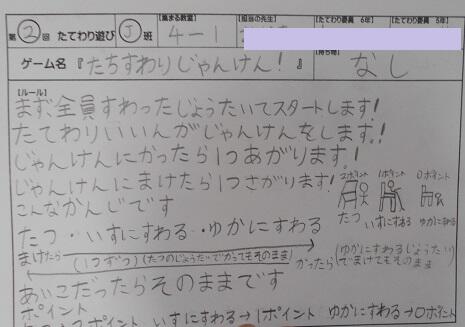 第②回 たてわり遊び Ⓙ班
集まる教室
4-1
担当の先生
たてわり委員 6年
たてわり委員 5年
ゲーム名『たちすわりじゃんけん!』
持ち物
なし
【ルール】
まず、全員すわったじょうたいでスタートします!
たてわりいいんがじゃんけんをします!
じゃんけんにかったら1つあがります!
じゃんけんにまけたら1つさがります!
こんなかんじです
2ポイント 1ポイント 0ポイント
たつ いすにすわる ゆかにすわる
たつ・いすにすわる・ゆかにすわる
まけたら (1つずつ) (たつのじょうたいでかってもそのまま)
かったら (ゆかにすわるじょうたいでまけてもそのまま)
あいこだったらそのままです
ポイント
2ポイント いすにすわる→1ポイント ゆかにすわる→0ポイント